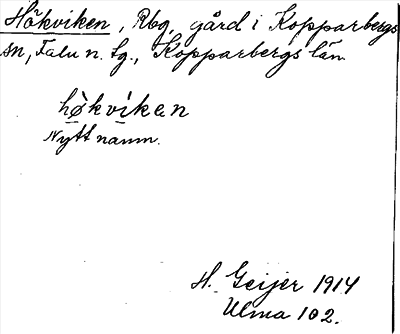 Hökviken, Rbg, gård i Kopparbergs
sn, Falu n. tg., Kopparbergs län.
hø̀kvìkan
Nytt namn.
H. Geijer 1914
Ulma 102.